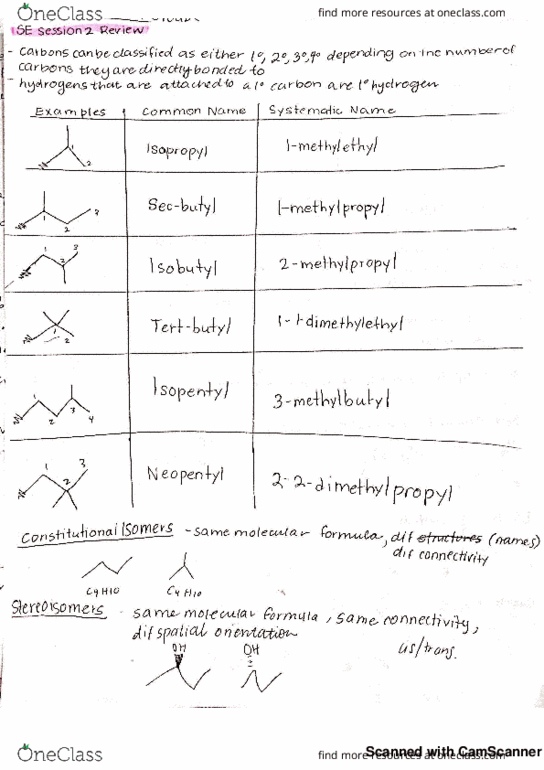 OneClass
find more resources at oneclass.com
SE Session 2 Review
- Carbons can be classified as either 1°, 2°, 3°, 4° depending on the number of
carbons they are directly bonded to
- hydrogens that are attached to a 1° carbon are 1° hydrogen
Examples Common Name Systematic Name
1 2
Isopropyl 1-methylethyl
1 2 3
Sec-butyl 1-methylpropyl
1 2 3
Isobutyl 2-methylpropyl
1 2
Tert-butyl 1-1-dimethylethyl
1 2 3 4
Isopentyl 3-methylbutyl
1 2 3
Neopentyl 2-2-dimethylpropyl
Constitutional Isomers - same molecular formula, dif structures (names)
dif connectivity
C4H10 C4H10
Stereoisomers - same molecular formula, same connectivity,
dif spatial orientation
cis/trans.
OH OH
OneClass
find more resources at oneclass.com
Scanned with CamScanner